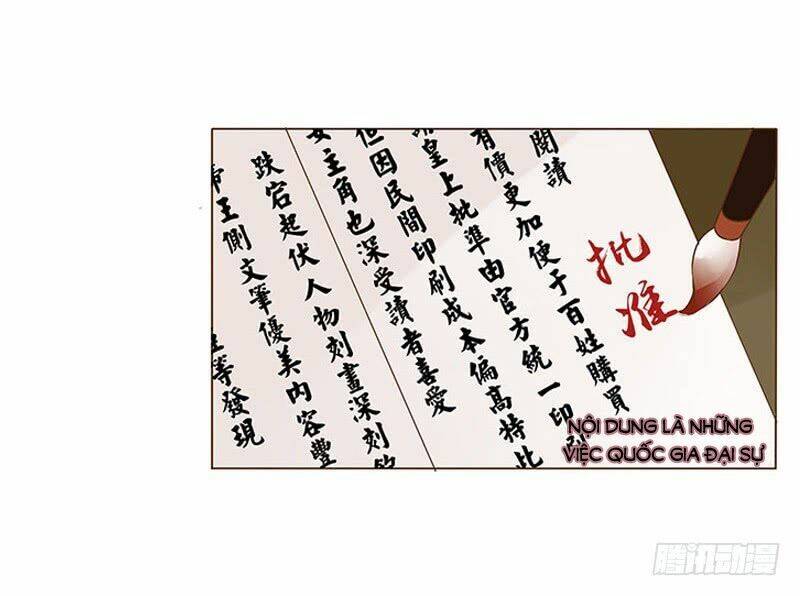 閱讀
有價更加便于百姓購買
請皇上批準由官方統一印刷
但因民間印刷成本偏高特此
女主角也深受讀者喜愛
跌宕起伏人物刻畫深刻
帝王側文筆優美內容豐
等發現
批准
NỘI DUNG LÀ NHỮNG
VIỆC QUỐC GIA ĐẠI SỰ
腾讯动漫